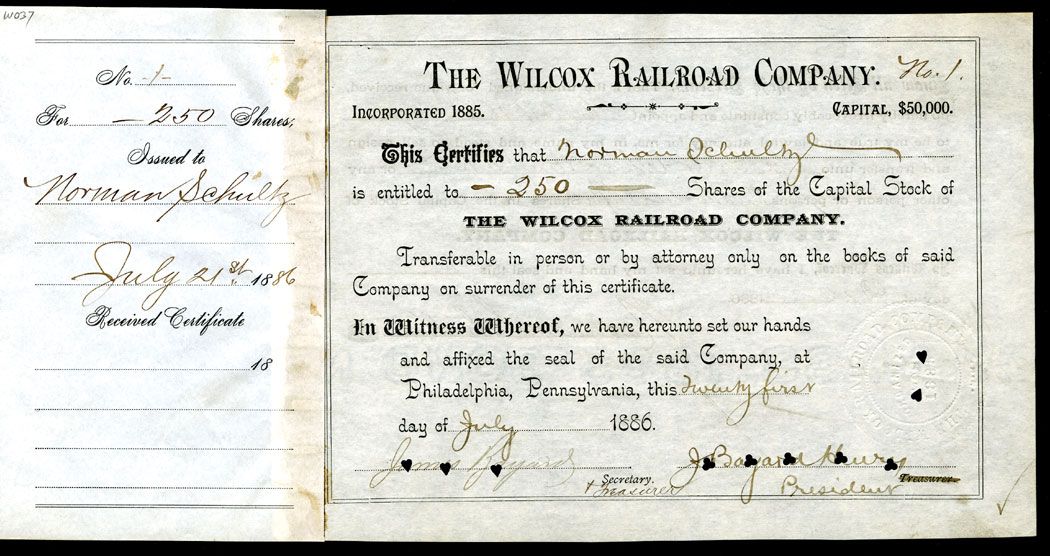 W037
No. -1-
For -250 Shares;
Issued to
Norman Schultz
July 21st. 1886
Received Certificate
18
THE WILCOX RAILROAD COMPANY. No. 1.
INCORPORATED 1885. CAPITAL, $50,000.
This Certifies that Norman Schultz
is entitled to - 250 — Shares of the Capital Stock of
THE WILCOX RAILROAD COMPANY.
Transferable in person or by attorney only on the books of said
Company on surrender of this certificate.
In Witness Whereof, we have hereunto set our hands
and affixed the seal of the said Company, at
Philadelphia, Pennsylvania, this twenty first
day of July 1886.
James J. Bayard Henry
Secretary. Treasurer.
+ Treasurer President